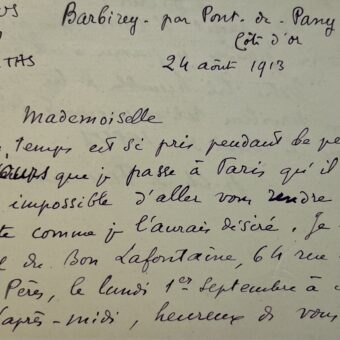 US
Barbirey - par Pont - de - Pany
Côte d'or
TAS
24 août 1913
Mademoiselle
temps est si pris pendant
que je passe à Paris qu'il
impossible d'aller vous rendre
comme je l'aurais désiré. Je
Bon Lafontaine, 64 rue
Pères, le lundi 1er Septembre à
après-midi, heureux de vous